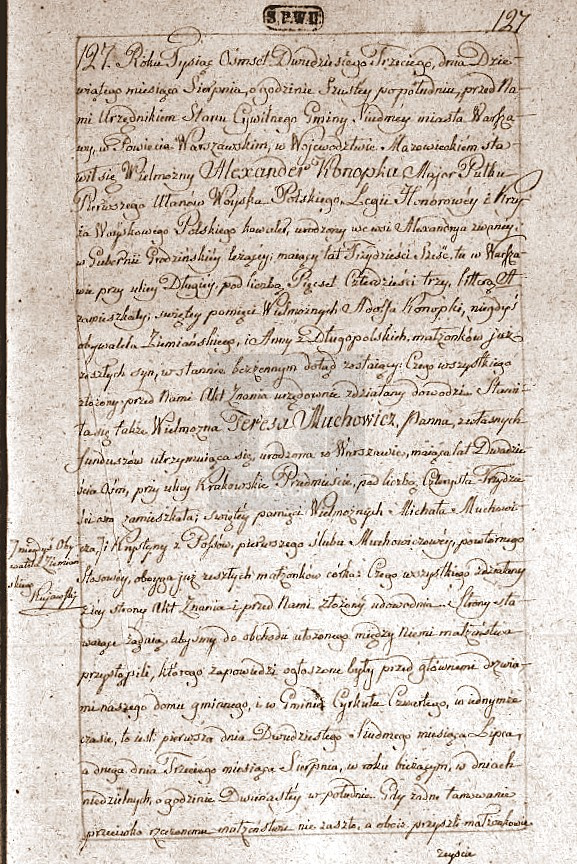 S.P.W.U
127
127. Roku Tysiąc Ośmset Dwudziestego Trzeciego, dnia Dzie-
wiątego miesiąca Sierpnia, o godzinie Szóstey popołudniu, przed Na-
mi Urzędnikiem Stanu Cywilnego Gminy Siudmey miasta Warsza-
wy, w Powiecie Warszawskim, w Województwie Mazowieckiem sta-
wił się Wielmożny Alexander Konopka Major Pułku
Pierwszego Ułanów Woyska Polskiego, Legii Honorowéy i Krzy-
ża Woyskowego Polskiego kawaler, urodzony we wsi Alexandrya zwaney,
w Gubernii Grodzińskiey leżącey; maiący lat Trzydzieści Sześć, tu w Warsza-
wie przy ulicy Długiey, pod liczbą Pięćset Czterdzieści trzy, litterą A
zamieszkały; święty pamięci Wielmożnych Adolfa Konopki, niegdyś
obywatela Ziemiańskiego, i Anny z Długopolskich, małżonków już
zeszłych syn, w stannie bezżennym dotąd zostaiący: Czego wszystkiego
złożony przed Nami Akt Znania urzędownie zdziałany dowodzi. Stawi-
ła się także Wielmożna Teresa Muchowicz, Panna, z własnych
funduszów utrzymuiąca się, urodzona w Warszawie, maiąca lat Dwadzie-
ścia Ośm, przy ulicy Krakowskie Przedmieście, pod liczbą Czterysta Trzydzie-
ści zamieszkała; świętey pamięci Wielmożnych Michała Muchowi-
cza, i Krystyny z Possów, pierwszego ślubu Muchowiczowéy, powtórnego
Stosowéy, oboyga już zeszłych małżonków córka: Czego wszystkiego zdziałany
strony Akt Znania i przed Nami złożony udowadnia. Strony sta-
waiące żądaią, abyśmy do obchodu ułożonego między Niemi małżeństwa
przystąpili, którego zapowiedzi ogłoszone były przed głownemi drzwia-
mi naszego domu gminnego, i w Gminie Cyrkułu Czwartego, w iednymże
czasie, to iest: pierwsza dnia Dwudziestego Siudmego miesiąca Lipca,
a druga dnia Trzeciego miesiąca Sierpnia, w roku bieżącym, w dniach
niedzielnych, o godzinie Dwunastéy w południe. Gdy żadne tamowanie
przeciwko rzeczonemu małżeństwu nie zaszło, a oboie przyszli małżonkowie
zeyście
niegdyś Oby-
watela Ziemiań-
skiego